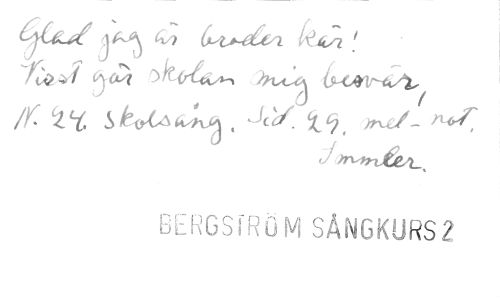 Glad jag är broder kär!
Visst gör skolan mig besvär,
N. 24. Skolsång. Sid. 29. mel-not.
Immler.
BERGSTRÖM SÅNGKURS 2